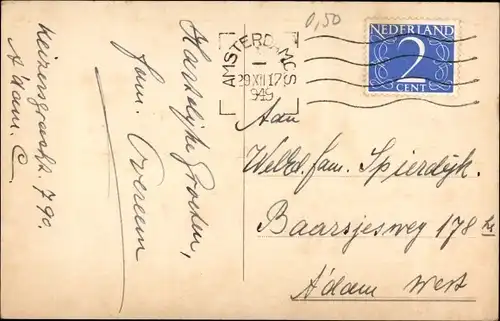 Keizersgracht 790.
A'dam. C.
Hartelijke Groeten,
fam. Overeem
0,50
AMSTERDAM-CS
29 XII 17
1949
NEDERLAND
2
CENT
Aan
Weled. fam. Spierdijk.
Baarsjesweg 178 hs
A'dam West